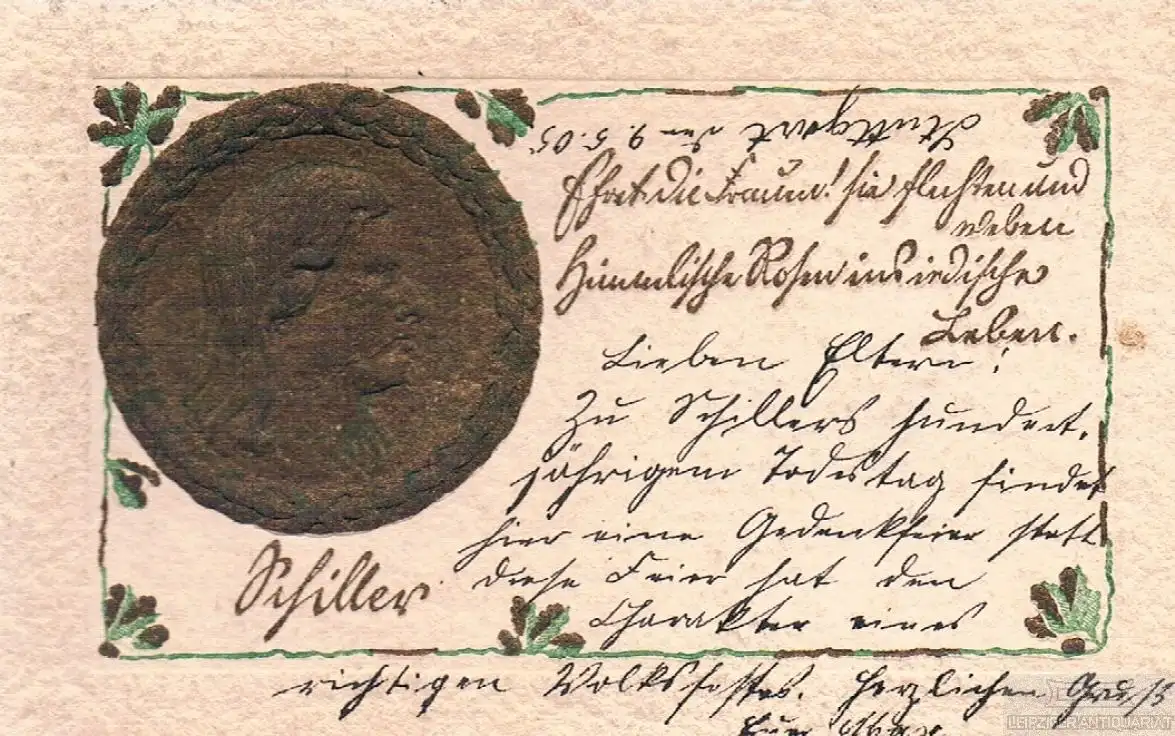 Stuttgart den 9.5.05.
Ehret die Frauen! sie flechten und
weben
Himmlische Rosen ins irdische
Leben.
Lieben Eltern!
Zu Schillers hundert-
jährigem Todestag findet
hier eine Gedenkfeier statt
diese Feier hat den
Charakter eines
richtigen Volksfestes. Herzlichen Gruss
Euer Max
Schiller
LEIPZIGER ANTIQUARIAT